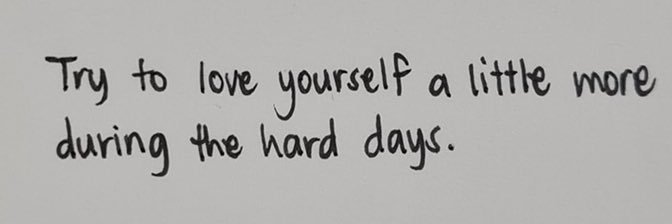 Try to love yourself a little more
during the hard days.